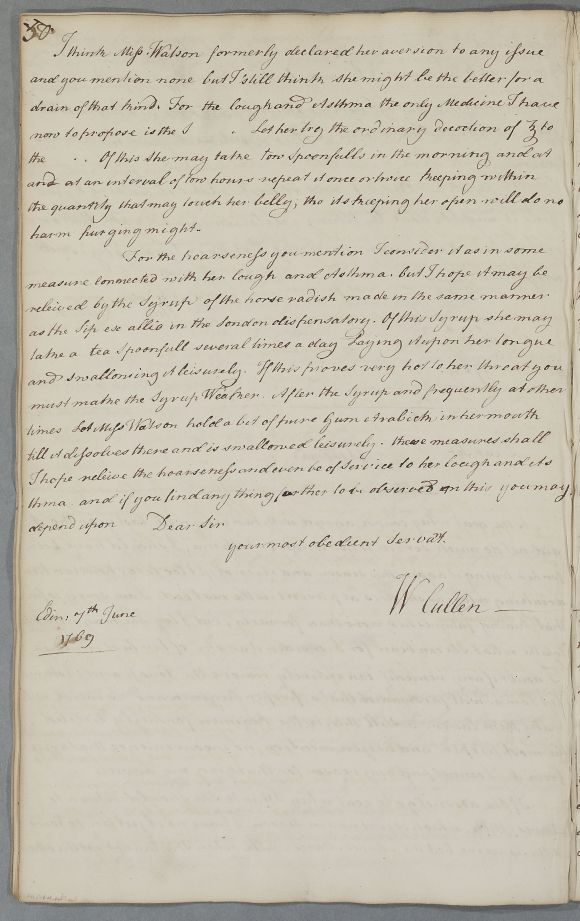 30.
I think Miss Watson formerly declared her aversion to any issue
and you mention none but I still think she might be the better for a
drain of that kind. For the Cough and Asthma the only Medicine I have
now to propose is the S . Let her try the ordinary decoction of ℥ to
the . . Of this she may take tow spoonfulls in the morning and at
and at an interval of tow hours repeat it once or twice keeping within
the quantity that may touch her belly, tho its keeping her open will do no
harm purging might.
For the hoarseness you mention I consider it as in some
measure connected with her Cough and Asthma. but I hope it may be
releived by the Syrup of the horse radish made in the same manner
as the Syp ex allio in the London dispensatory. Of this Syrup she may
take a tea spoonfull several times a day Laying it upon her tongue
and swallowing it leisurely. If this proves very hot to her throat you
must make the Syrup Weaker. After the Syrup and frequently at other
times Let Miss Watson hold a bit of pure Gum Arabick in her mouth
till it dissolves there and is swallowed leisurely. these measures shall
I hope releive the hoarseness and even be of Service to her Cough and As
thma. and if you find any thing further to be observed on this you may
depend upon Dear Sir
your most obedient Servat.
W Cullen
Edinr 7th June
1769